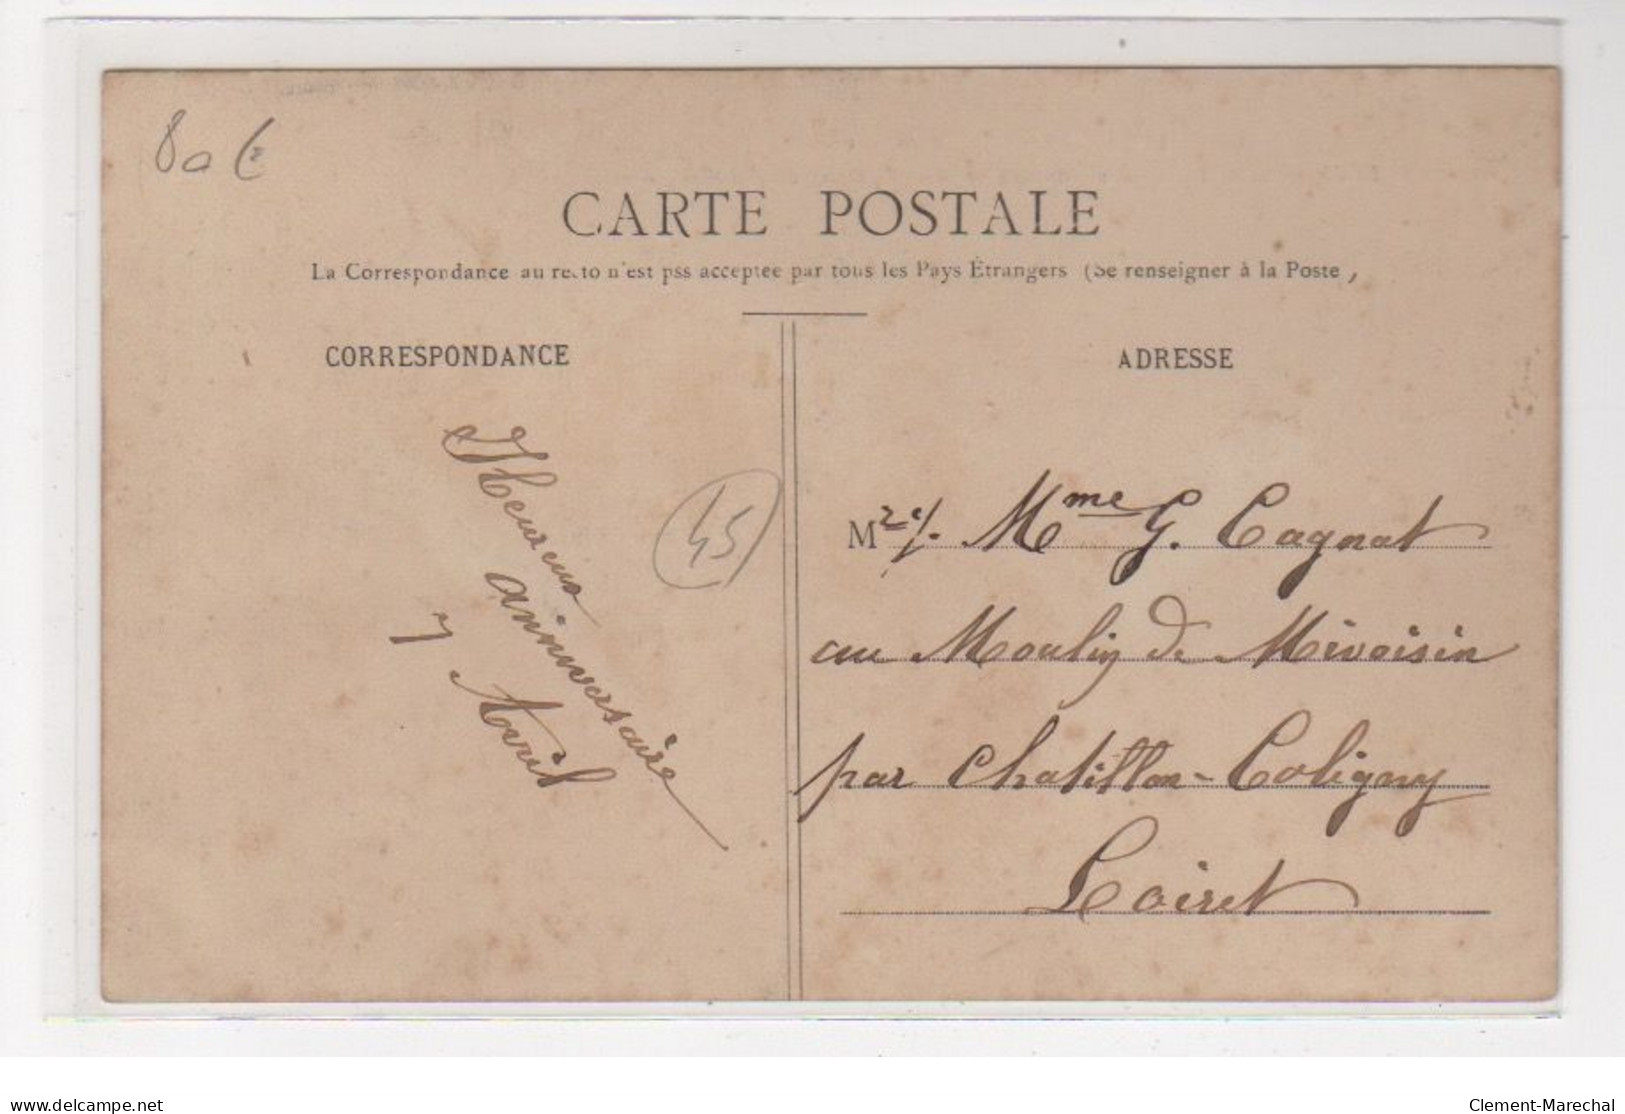 CARTE POSTALE
La Correspondance au recto n'est pss acceptée par tous les Pays Étrangers (Se renseigner à la Poste)
CORRESPONDANCE
ADRESSE
Heureux
anniversaire
7 Avril
45
M Mme G. Cagnat
au Moulin de Mivoisin
par Chatillon-Coligny
Loiret
www.delcampe.net
Clement-Marechal